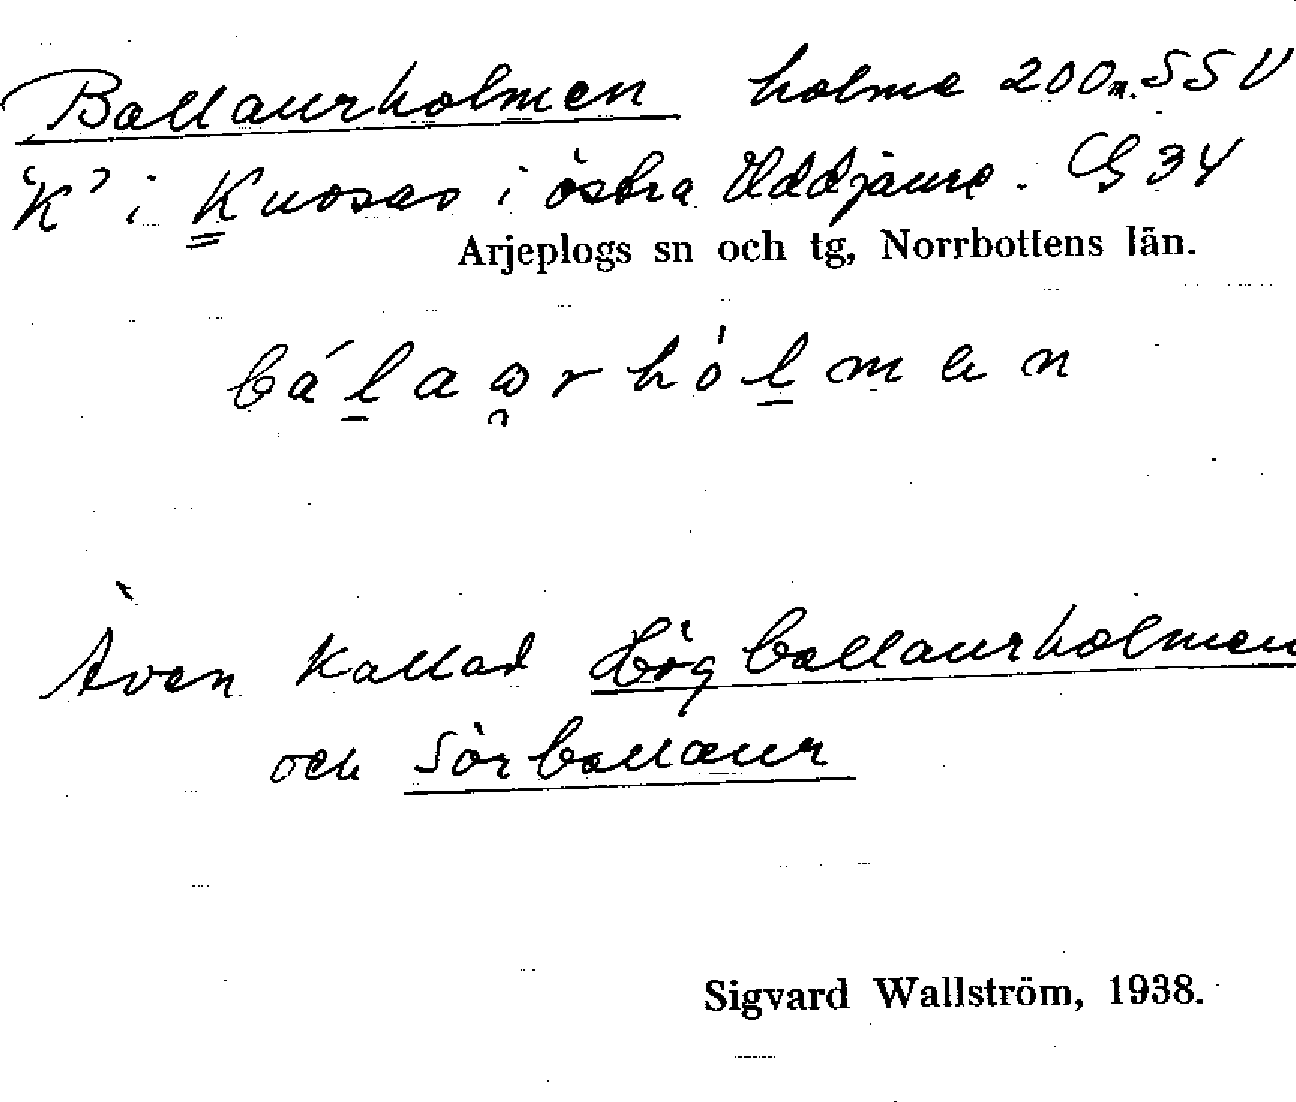 Ballaurholmen holme 200 m. SSV
"K" i Kuosas i östra Uddjaure. G 34
Arjeplogs sn och tg, Norrbottens län.
bálaωrhólmen
Även kallad Högballaurholmen
och Sörballaur
Sigvard Wallström, 1938.